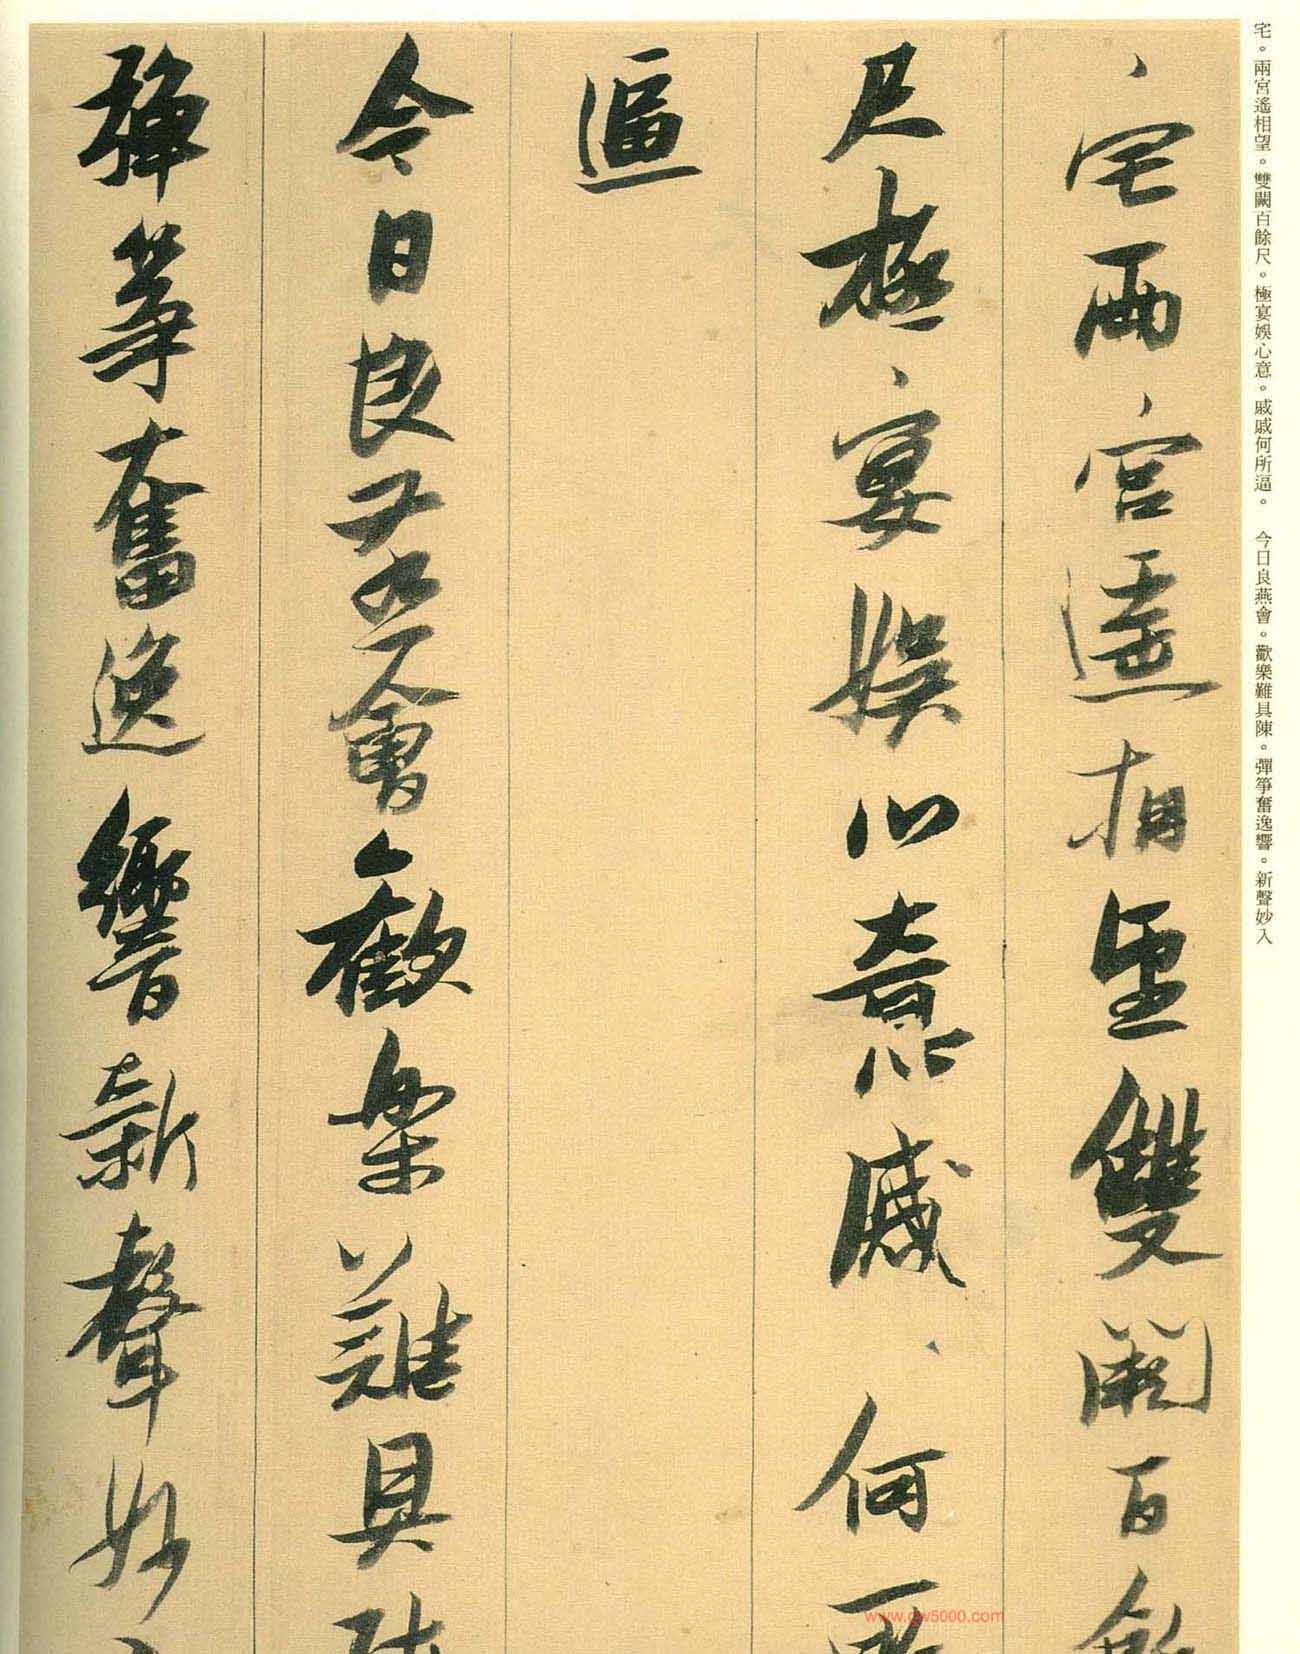 宅。兩宮遙相望。雙闕百餘尺。極宴娛心意。戚戚何所逼。　今日良燕會。歡樂難具陳。彈箏奮逸響。新聲妙入
宅兩宮遙相望雙闕百餘
尺極宴娛心意戚、何所
逼
今日良燕會歡樂難具陳
彈箏奮逸響新聲妙
www.qw5000.com